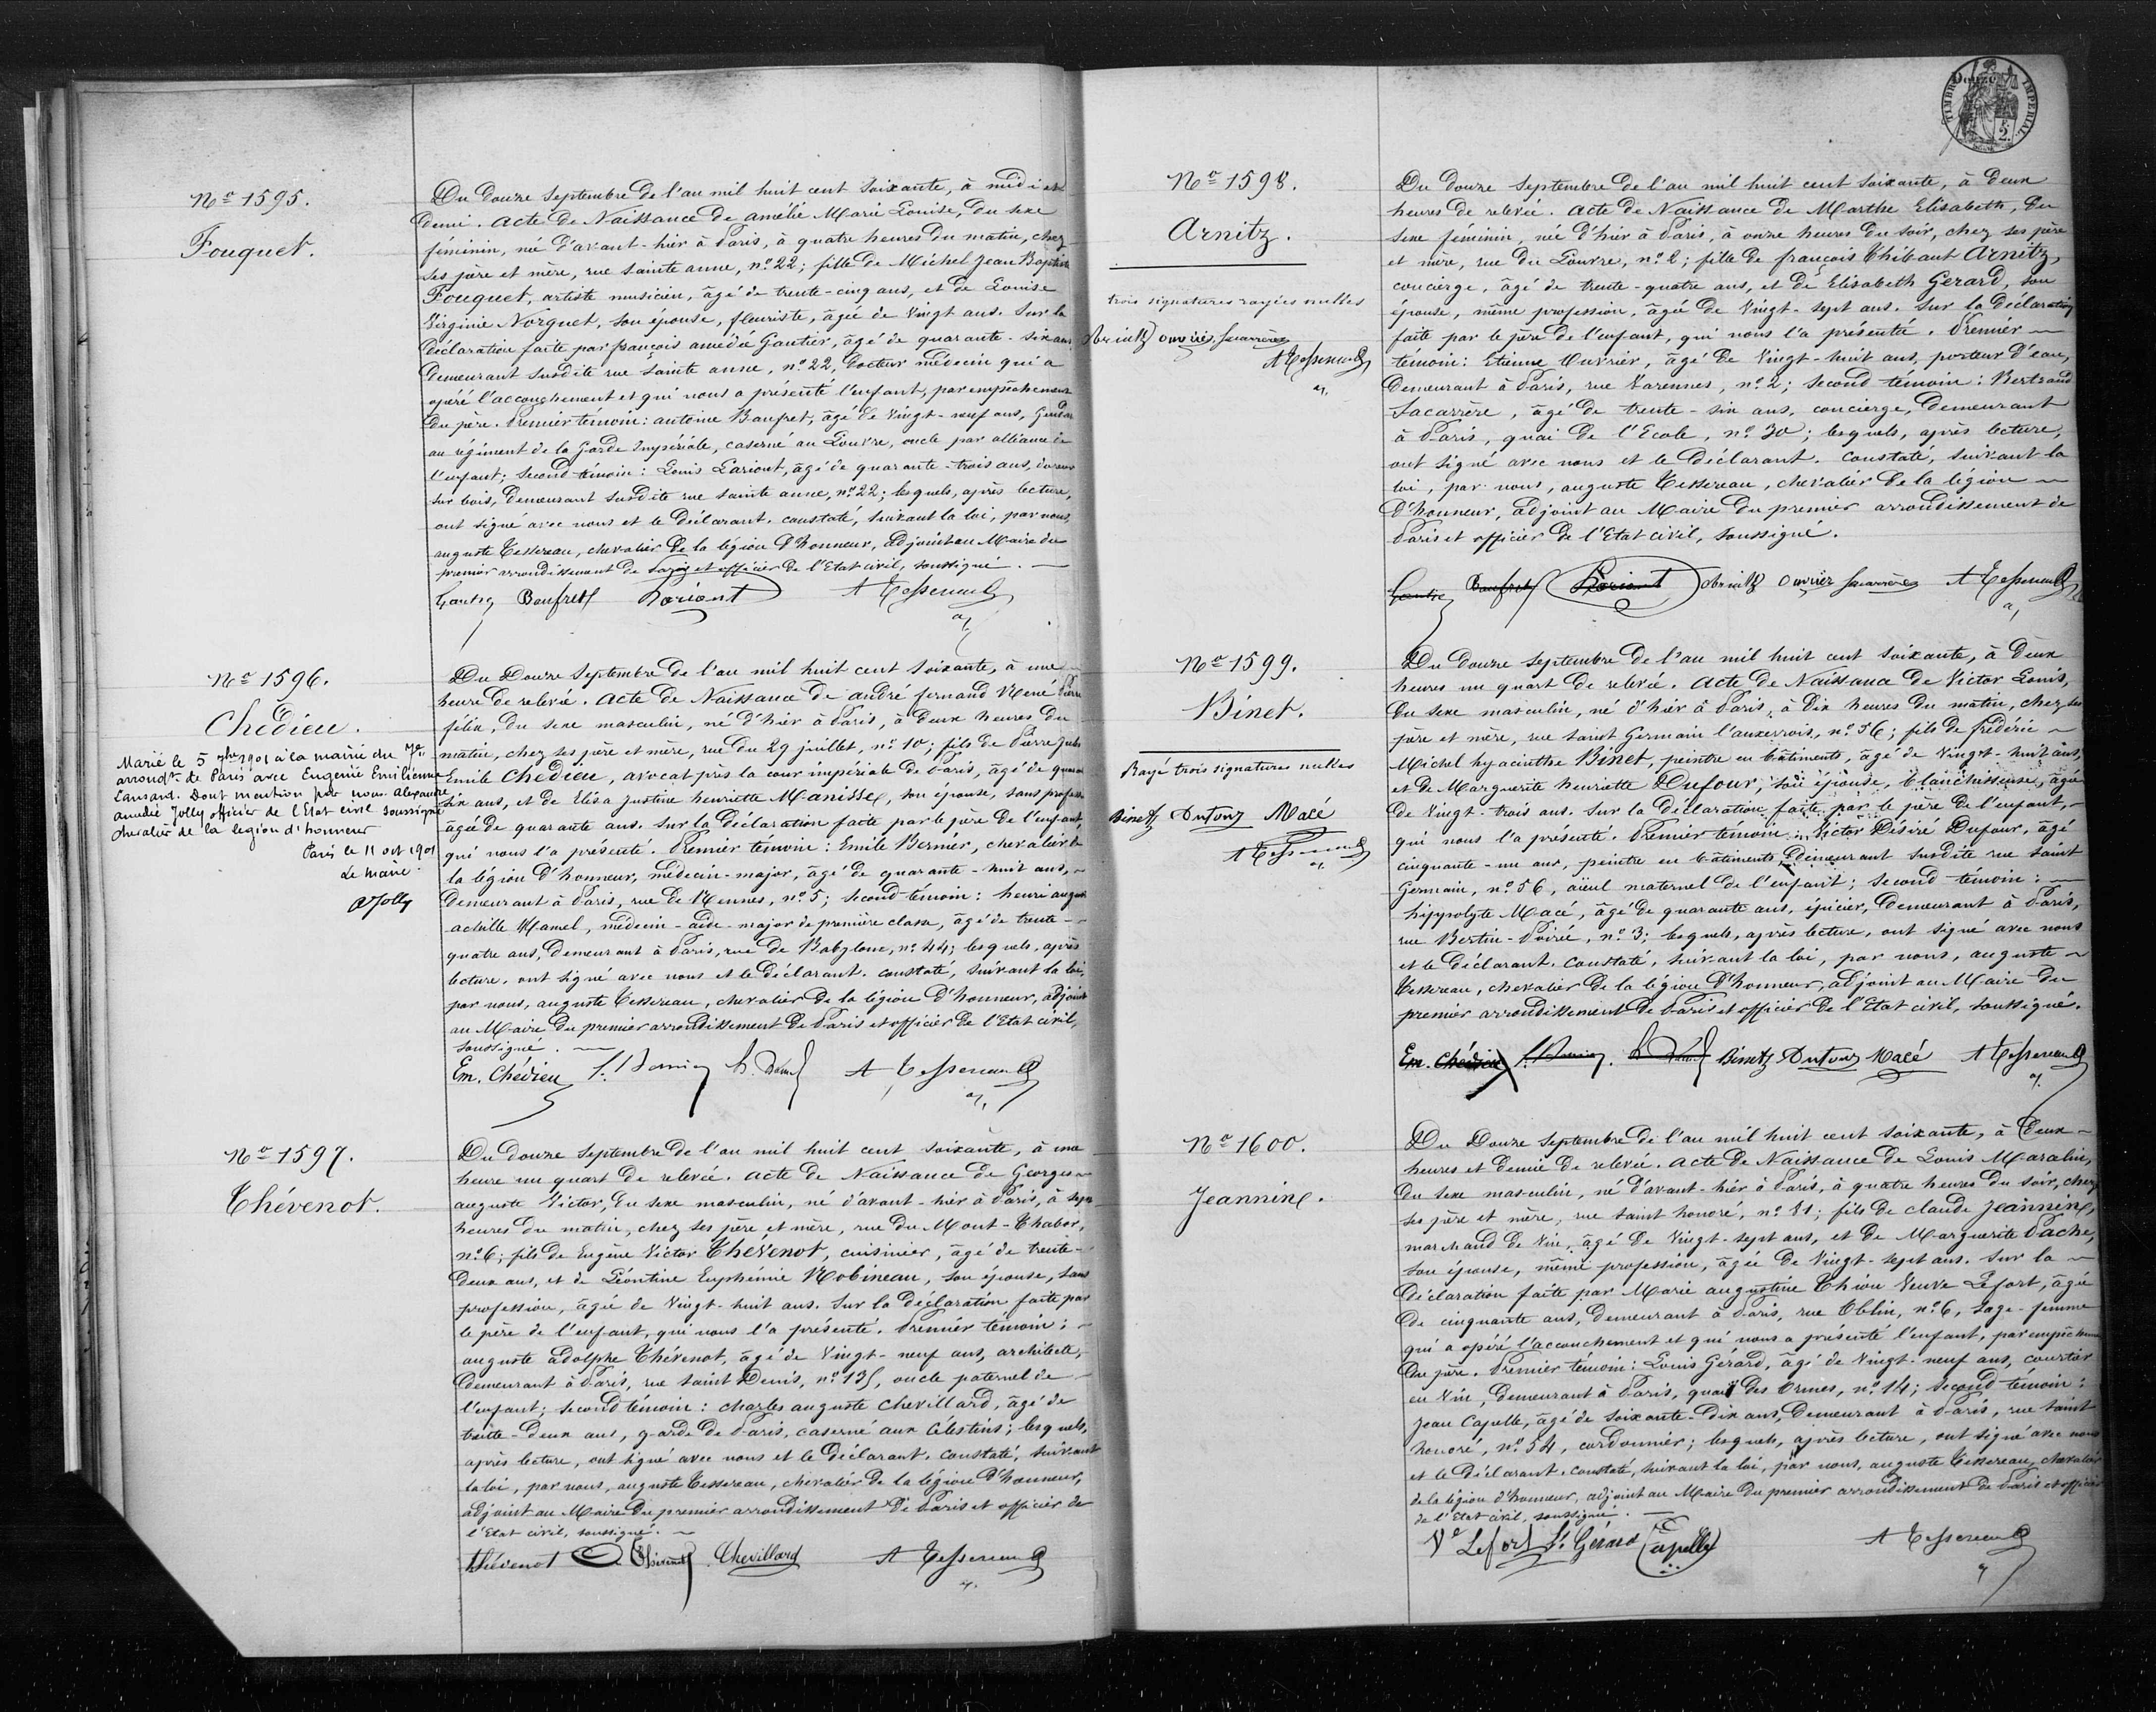 No 1595.
Fouquet.
Du Douze Septembre de l'an mil huit cent soixante, à midi et
demi. Acte de Naissance de amélie Marie Louise, du sexe
féminin, née d'avant-hier à Paris, à quatre heures du matin, chez
ses père et mère, rue Sainte anne, no 22; fille de Michel Jean Baptiste
Fouquet, artiste musicien, âgé de trente-cinq ans, et de Louise
Virginie Norguet, son épouse, fleuriste, âgée de vingt ans. Sur la
déclaration faite par françois amédée Gautier, âgé de quarante-six ans,
demeurant susdite rue Sainte anne, no 22, docteur médecin qui a
opéré l'accouchement et qui nous a présenté l'enfant, par empêchement
du père. Premier témoin: antoine Baufret, âgé de vingt-neuf ans,
au régiment de la Garde Impériale, caserné au Louvre, oncle par alliance de
l'enfant; second témoin: Louis Lariout, âgé de quarante-trois ans,
sur bois, demeurant susdite rue Sainte anne, no 22; lesquels, après lecture,
ont signé avec nous et le déclarant. constaté, suivant la loi, par nous,
auguste Tessereau, chevalier de la légion d'honneur, adjoint au Maire du
premier arrondissement de Paris et officier de l'Etat civil, soussigné.
Baufret A Tessereau
No 1596.
Chédieu.
Marié le 5 1901 à la mairie du 7e
arrondt de Paris avec Eugénie Emilienne
Lansard. Dont mention par nous Alexandre
amédée Jolly officier de l'Etat civil soussigné
chevalier de la legion d'honneur
Paris le 11 oct 1901
Le Maire
A Jolly
Du Douze Septembre de l'an mil huit cent soixante, à une
heure de relevée. Acte de Naissance de andré fernand René Pierre
félix, du sexe masculin, né d'hier à Paris, à deux heures du
matin, chez ses père et mère, rue du 29 juillet, no 10; fils de Pierre Jules
Emile Chédieu, avocat près la cour impériale de Paris, âgé de
six ans, et de Elisa Justine henriette Manisse, son épouse, sans profession
âgée de quarante ans. Sur la déclaration faite par le père de l'enfant,
qui nous l'a présenté. Premier témoin: Emile Bernier, chevalier de
la légion d'honneur, médecin-major, âgé de quarante-huit ans,
demeurant à Paris, rue de Rennes, no 5; second témoin: henri auguste
achille Hamel, médecin-aide-major de première classe, âgé de trente-
quatre ans, demeurant à Paris, rue de Babylone, no 44; lesquels, après
lecture, ont signé avec nous et le déclarant. constaté, suivant la loi,
par nous, auguste Tessereau, chevalier de la légion d'honneur, adjoint
au Maire du premier arrondissement de Paris et officier de l'Etat civil,
soussigné.
Em. Chédieu A Tessereau
No 1597.
Thévenot.
Du douze Septembre de l'an mil huit cent soixante, à une
heure un quart de relevée. Acte de Naissance de Georges
auguste Victor, du sexe masculin, né d'avant-hier à Paris, à sept
heures du matin, chez ses père et mère, rue du Mont-Thabor,
no 6; fils de Eugène Victor Thévenot, cuisinier, âgé de trente-
deux ans, et de Léontine Euphémie Robineau, son épouse, sans
profession, âgée de vingt-huit ans. Sur la déclaration faite par
le père de l'enfant, qui nous l'a présenté. Premier témoin:
auguste adolphe Thévenot, âgé de vingt-neuf ans, architecte,
demeurant à Paris, rue Saint Denis, no 135, oncle paternel de
l'enfant; second témoin: charles auguste Chevillard, âgé de
trente-deux ans, garde de Paris, caserné aux Célestins; lesquels,
après lecture, ont signé avec nous et le déclarant. constaté, suivant
la loi, par nous, auguste Tessereau, chevalier de la légion d'honneur,
adjoint au Maire du premier arrondissement de Paris et officier de
l'Etat civil, soussigné.
Thévenot Thévenot Chevillard A Tessereau
TIMBRE IMPERIAL
Douze
No 1598.
Arnitz.
trois signatures rayées nulles
Arnitz ouvrier Sacarrère
A Tessereau
Du Douze Septembre de l'an mil huit cent soixante, à deux
heures de relevée. Acte de Naissance de Marthe Elisabeth, du
sexe féminin, née d'hier à Paris, à onze heures du soir, chez ses père
et mère, rue du Louvre, no 2; fille de françois Thibaut Arnitz,
concierge, âgé de trente-quatre ans, et de Elisabeth Gerard, son
épouse, même profession, âgée de vingt-sept ans. Sur la déclaration
faite par le père de l'enfant, qui nous l'a présenté. Premier
témoin: Etienne Ouvrier, âgé de vingt-huit ans, porteur d'eau,
demeurant à Paris, rue Varennes, no 2; second témoin: Bertrand
Sacarrère, âgé de trente-six ans, concierge, demeurant
à Paris, quai de l'Ecole, no 30; lesquels, après lecture,
ont signé avec nous et le déclarant. Constaté, suivant la
loi, par nous, auguste Tessereau, chevalier de la légion
d'honneur, adjoint au Maire du premier arrondissement de
Paris et officier de l'Etat civil, soussigné.
Baufret Arnitz Ouvrier Sacarrère A Tessereau
No 1599.
Binet.
Rayé trois signatures nulles
Binet Dufour Macé
A Tessereau
Du Douze Septembre de l'an mil huit cent soixante, à deux
heures un quart de relevée. Acte de Naissance de Victor Louis,
du sexe masculin, né d'hier à Paris, à dix heures du matin, chez ses
père et mère, rue Saint Germain l'auxerrois, no 56; fils de frédéric
Michel hyacinthe Binet, peintre en bâtiments, âgé de vingt-huit ans,
et de Marguerite henriette Dufour, son épouse, blanchisseuse, âgée
de vingt-trois ans. Sur la déclaration faite par le père de l'enfant,
qui nous l'a présenté. Premier témoin: Victor Désiré Dufour, âgé
cinquante-un ans, peintre en bâtiments, demeurant susdite rue Saint
Germain, no 56, aïeul maternel de l'enfant; second témoin:
hippolyte Macé, âgé de quarante ans, épicier, demeurant à Paris,
rue Bertin-Poirée, no 3; lesquels, après lecture, ont signé avec nous
et le déclarant. Constaté, suivant la loi, par nous, auguste
Tessereau, chevalier de la légion d'honneur, adjoint au Maire du
premier arrondissement de Paris et officier de l'Etat civil, soussigné.
Em. Chédieu Binet Dufour Macé A Tessereau
No 1600.
Jeannine.
Du Douze Septembre de l'an mil huit cent soixante, à deux
heures et demie de relevée. Acte de Naissance de Louis Maralin,
du sexe masculin, né d'avant-hier à Paris, à quatre heures du soir, chez
ses père et mère, rue Saint honoré, no 81; fils de claude Jeannine,
marchand de vin, âgé de vingt-sept ans, et de Marguerite Pache,
son épouse, même profession, âgée de vingt-sept ans. Sur la
déclaration faite par Marie augustine Thiou Veuve Lefort, âgée
de cinquante ans, demeurant à Paris, rue Oblin, no 6, sage-femme
qui a opéré l'accouchement et qui nous a présenté l'enfant, par empêchement
du père. Premier témoin: Louis Gérard, âgé de vingt-neuf ans, courtier
en vin, demeurant à Paris, quai des Ormes, no 14; second témoin:
Jean Capelle, âgé de soixante-dix ans, demeurant à Paris, rue Saint
honoré, no 54, cordonnier; lesquels, après lecture, ont signé avec nous
et le déclarant. constaté, suivant la loi, par nous, auguste Tessereau, chevalier
de la légion d'honneur, adjoint au Maire du premier arrondissement de Paris et officier
de l'Etat civil, soussigné.
Ve Lefort Ls Gérard Capelle A Tessereau